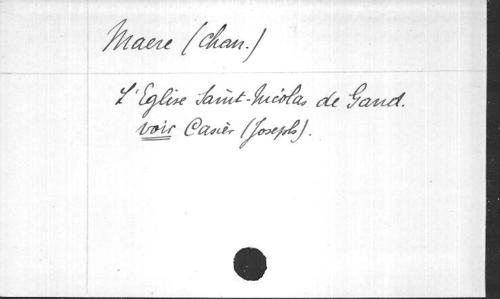 Maere (Chan.)
L'Eglise Saint-Nicolas de Gand.
voir Casier (Joseph).